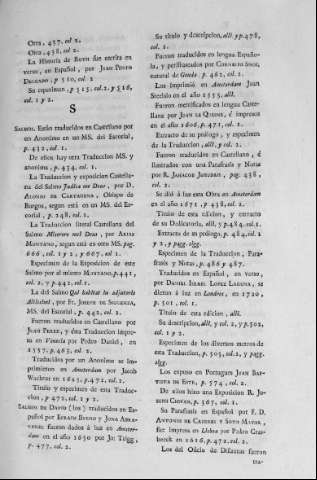 Otra, 437, col 2.
Otra, 438, col 2.
La Historia de RUTH fue escrita en
verso, en Español, por JUAN PINTO
DELGADO, p 510, col 2
Su especimen, p 515, col.2. y 516,
col 1 y 2.
S
SALMOS. Están traducidos en Castellano por
un Anonimo en un MS. del Escorial,
p. 432, col 1.
De ellos hay otra Traduccion MS. y
anonima, p. 434, col. 1.
La Traduccion y exposicion Castella-
na del Salmo Judica me Deus, por D.
ALONSO DE CARTAGENA, Obispo de
Burgos, segun está en un MS. del Es-
corial, p. 248, col. 1.
La Traduccion literal Castellana del
Salmo Miserere mei Deus, por ARIAS
MONTANO, segun está en otro MS. pag.
666, col. 1 y 2, y 667, col 1.
Especimen de la Exposicion de este
Salmo por el mismo MONTANO, p.441,
col. 2, y p.442, col.1.
La del Salmo Qui habitat in adjutorio
Altissimi, por Fr. JOSEPH DE SIGUENZA,
MS. del Escorial, p. 442, col. 2.
Fueron traducidos en Castellano por
JUAN PEREZ, y ésta Traduccion impre-
sa en Venecia por Pedro Daniel, en
1557, p.463, col. 2.
Traducidos por un Anonimo se im-
primieron en Amsterdam por Jacob
Wachter en 1625, p.472, col. 1.
Titulo y especimen de esta Traduc-
cion, p 472, col. 1 y 2.
SALMOS DE DAVID (los) traducidos en Es-
pañol por EFRAIN BUENO y JONA ABRA-
VANEL: fueron dados á luz en Amster-
dam en el año 1650 por Jo: Trigg,
p. 477, col. 2.
Su titulo y descripcion, alli. y p.478,
col. 1.
Fueron traducidos en lengua Españo-
la, y perifraseados por CORNELIO SNOI,
natural de Gouda. p. 462, col. 1.
Los imprimió en Amsterdam Juan
Steelsio en el año 1555, alli.
Fueron metrificados en lengua Caste-
llana por JUAN LE QUESNE, é impresos
en el año 1606, p.471, col. 1.
Extracto de su prólogo, y especimen
de la Traduccion, alli y col. 2.
Fueron traducidos en Castellano, é
ilustrados con una Parafrasis y Notas
por R. JAHACOB JEHUDAH, pag. 438,
col. 2.
Se dió á luz esta Obra en Amsterdam
en el año 1671, p 438, col. 2.
Titulo de esta edicion, y extracto
de su Dedicatoria, alli, y p.484, col.1.
Extracto de su prólogo, p. 484, col. 1
y 2, y pagg. sigg.
Especimen de la Traduccion, Para-
frasis y Notas, p.486 y 487.
Traducidos en Español, en verso,
por DANIEL ISRAEL LOPEZ LAGUNA, se
dieron á luz en Londres, en 1720,
p. 501, col. 1.
Titulo de esta edicion, alli.
Su descripcion, alli, y col. 2, y p.502,
col. 1 y 2.
Especimen de los diversos metros de
esta Traduccion, p. 503, col.2, y pagg.
sigg.
Los expuso en Portugues JUAN BAU-
TISTA DE ESTE, p. 574, col. 2.
De ellos hizo una Exposicion R. JU-
SEPH CHOVAN, p. 567, col. 1.
Su Parafrasis en Español por F. D.
ANTONIO DE CACERES Y SOTO MAYOR,
fue impresa en Lisboa por Pedro Cras-
beeck en 1616, p. 472, col. 2.
Los del Oficio de Difuntos fueron
tra-